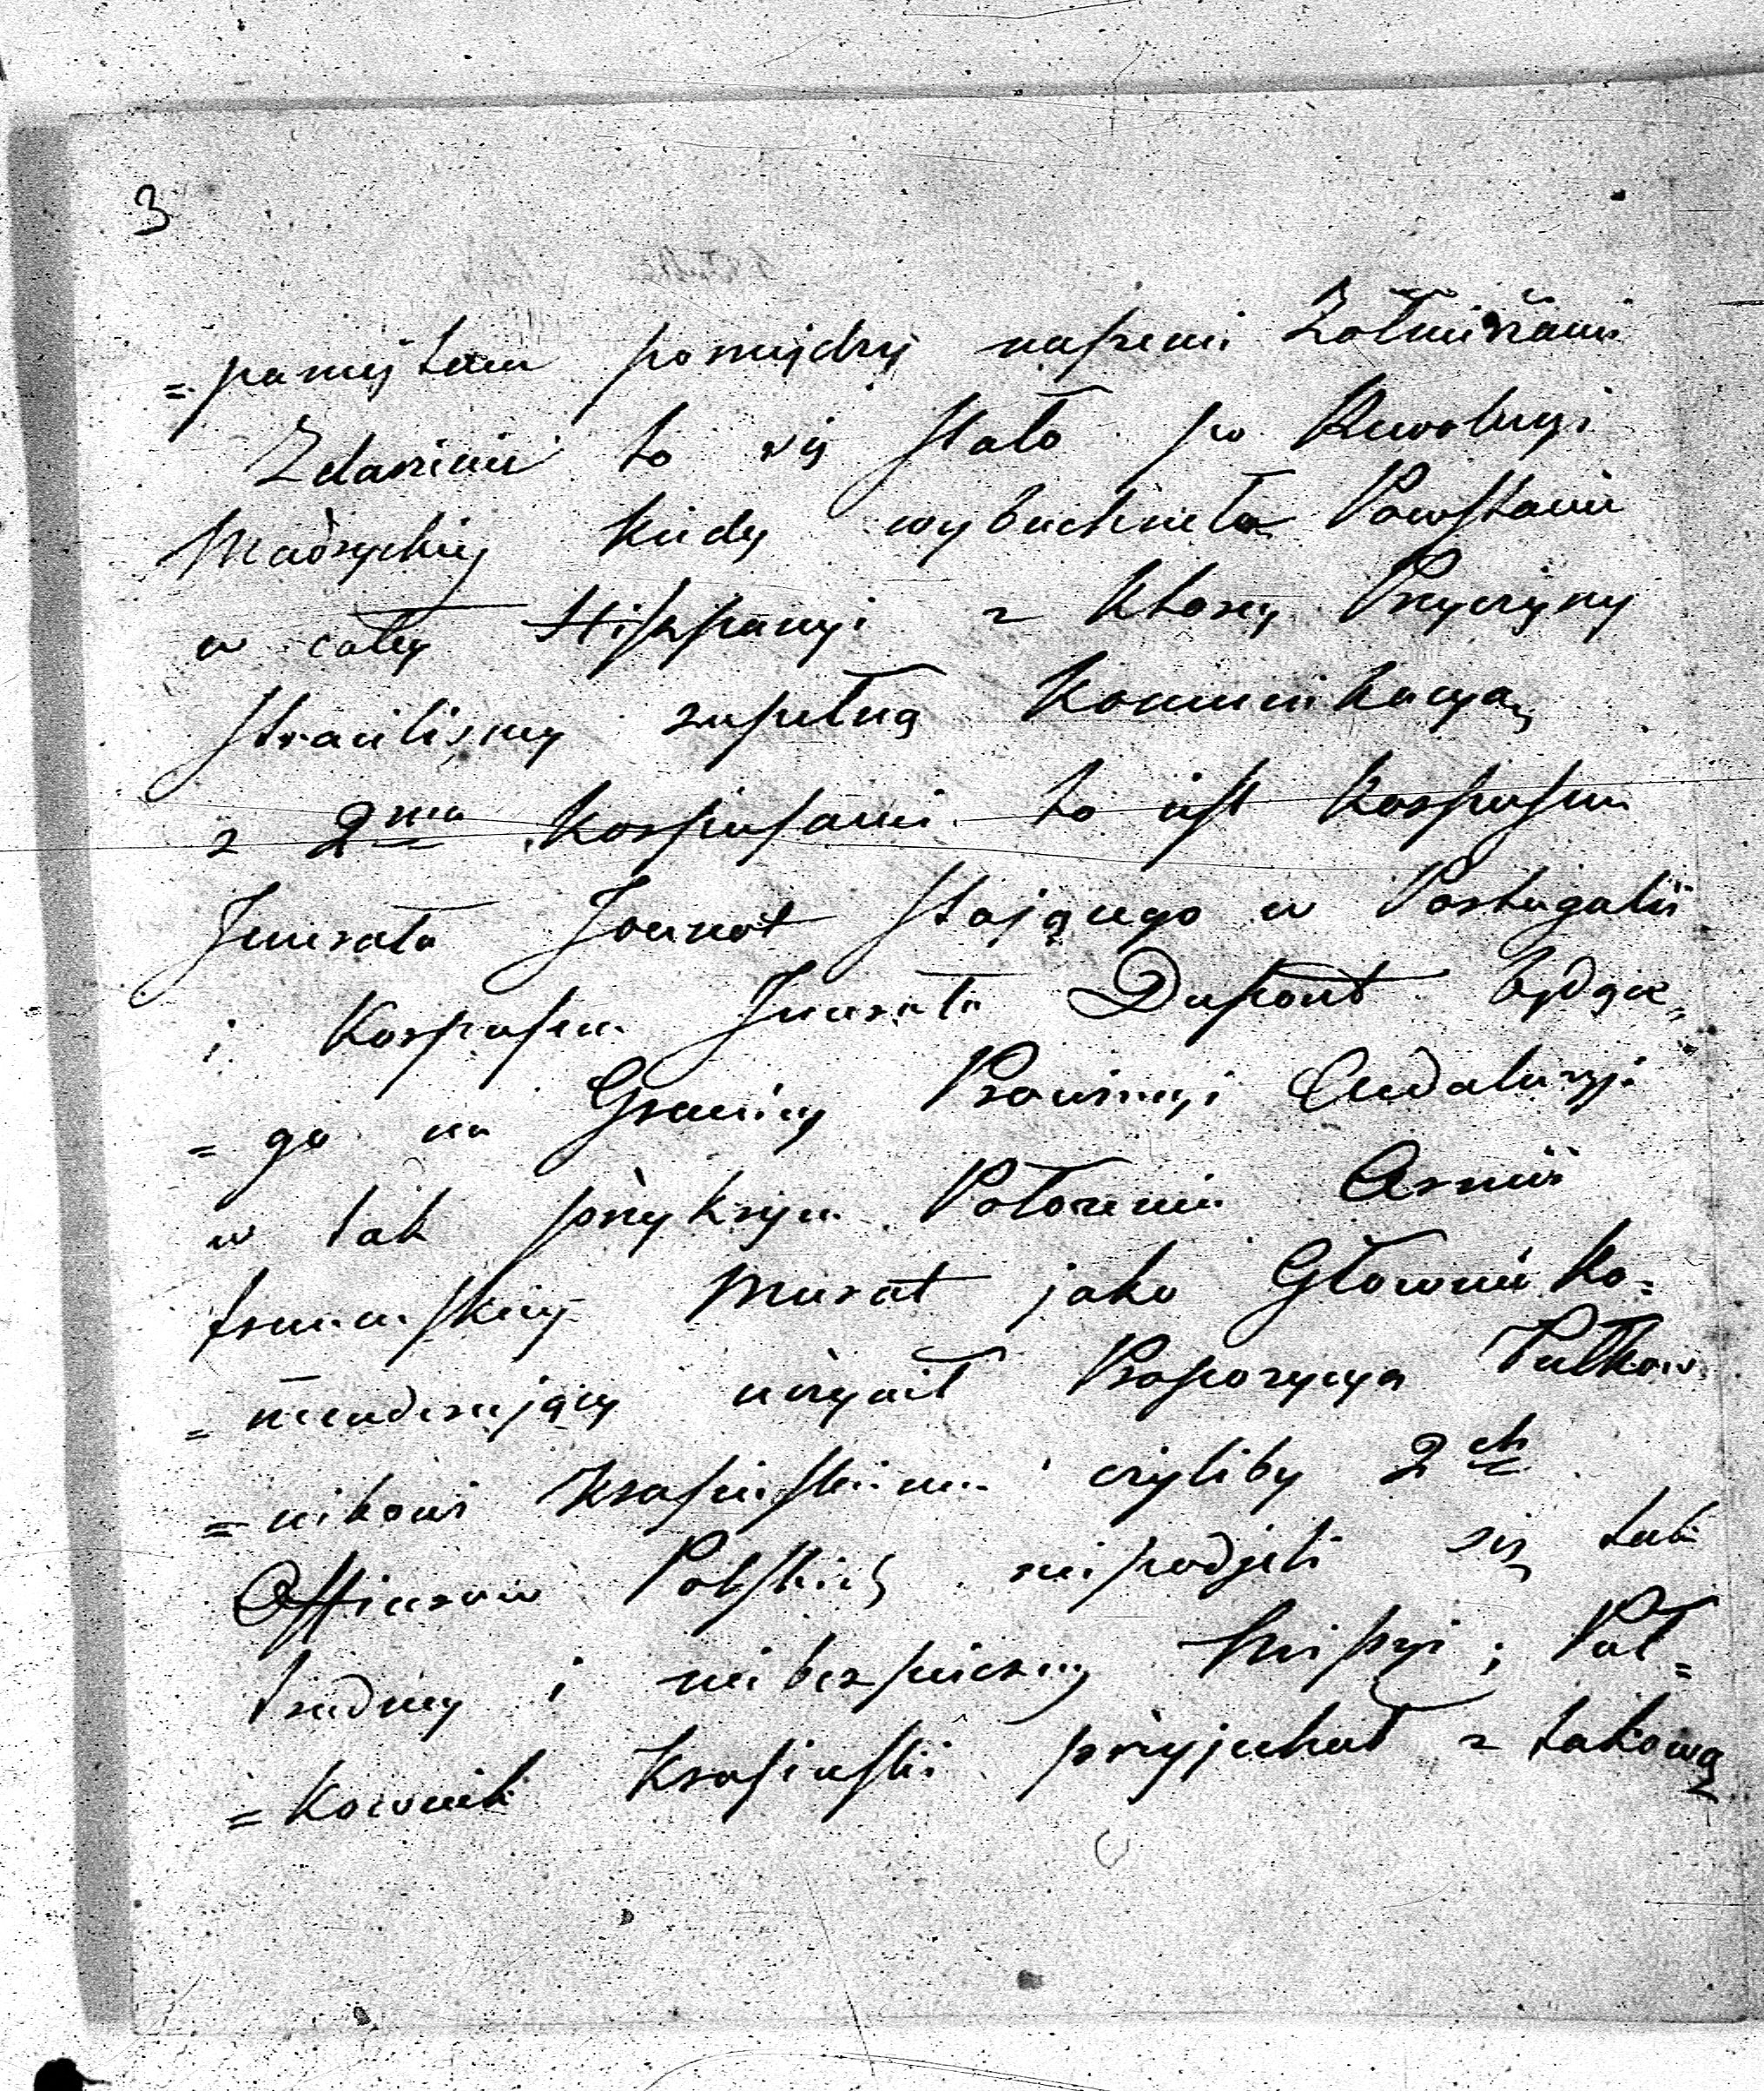 3
=pamiętam pomiędzy naszemi Żołnierzami
Zdarzenie to się stało po Rewolucyi
Madryckiey kiedy wybuchneła Powstanie
w całey Hiszpanyi z ktorey Przyczyny
straciliśmy zupełną Komunikacyą
z 2ma Korpusami to iest Korpusem
Jenerała Jounot stojącego w Portugalii
i Korpusem Jenerała Dupont będące„
=go na Granicy Prowincyi Andaluzyi
w tak przykrym Położeniu Armii
francuskiey Murat jako Głownie Ko=
=menderujący uczynił Propozycyą Pułkow
=nikowi Krasinskiemu czyliby 2ch
Officerow Polskich niepodjeli się tak
trudney i niebezpieczney Missyi; Puł=
=kownik Krasinski przyjechał z takową